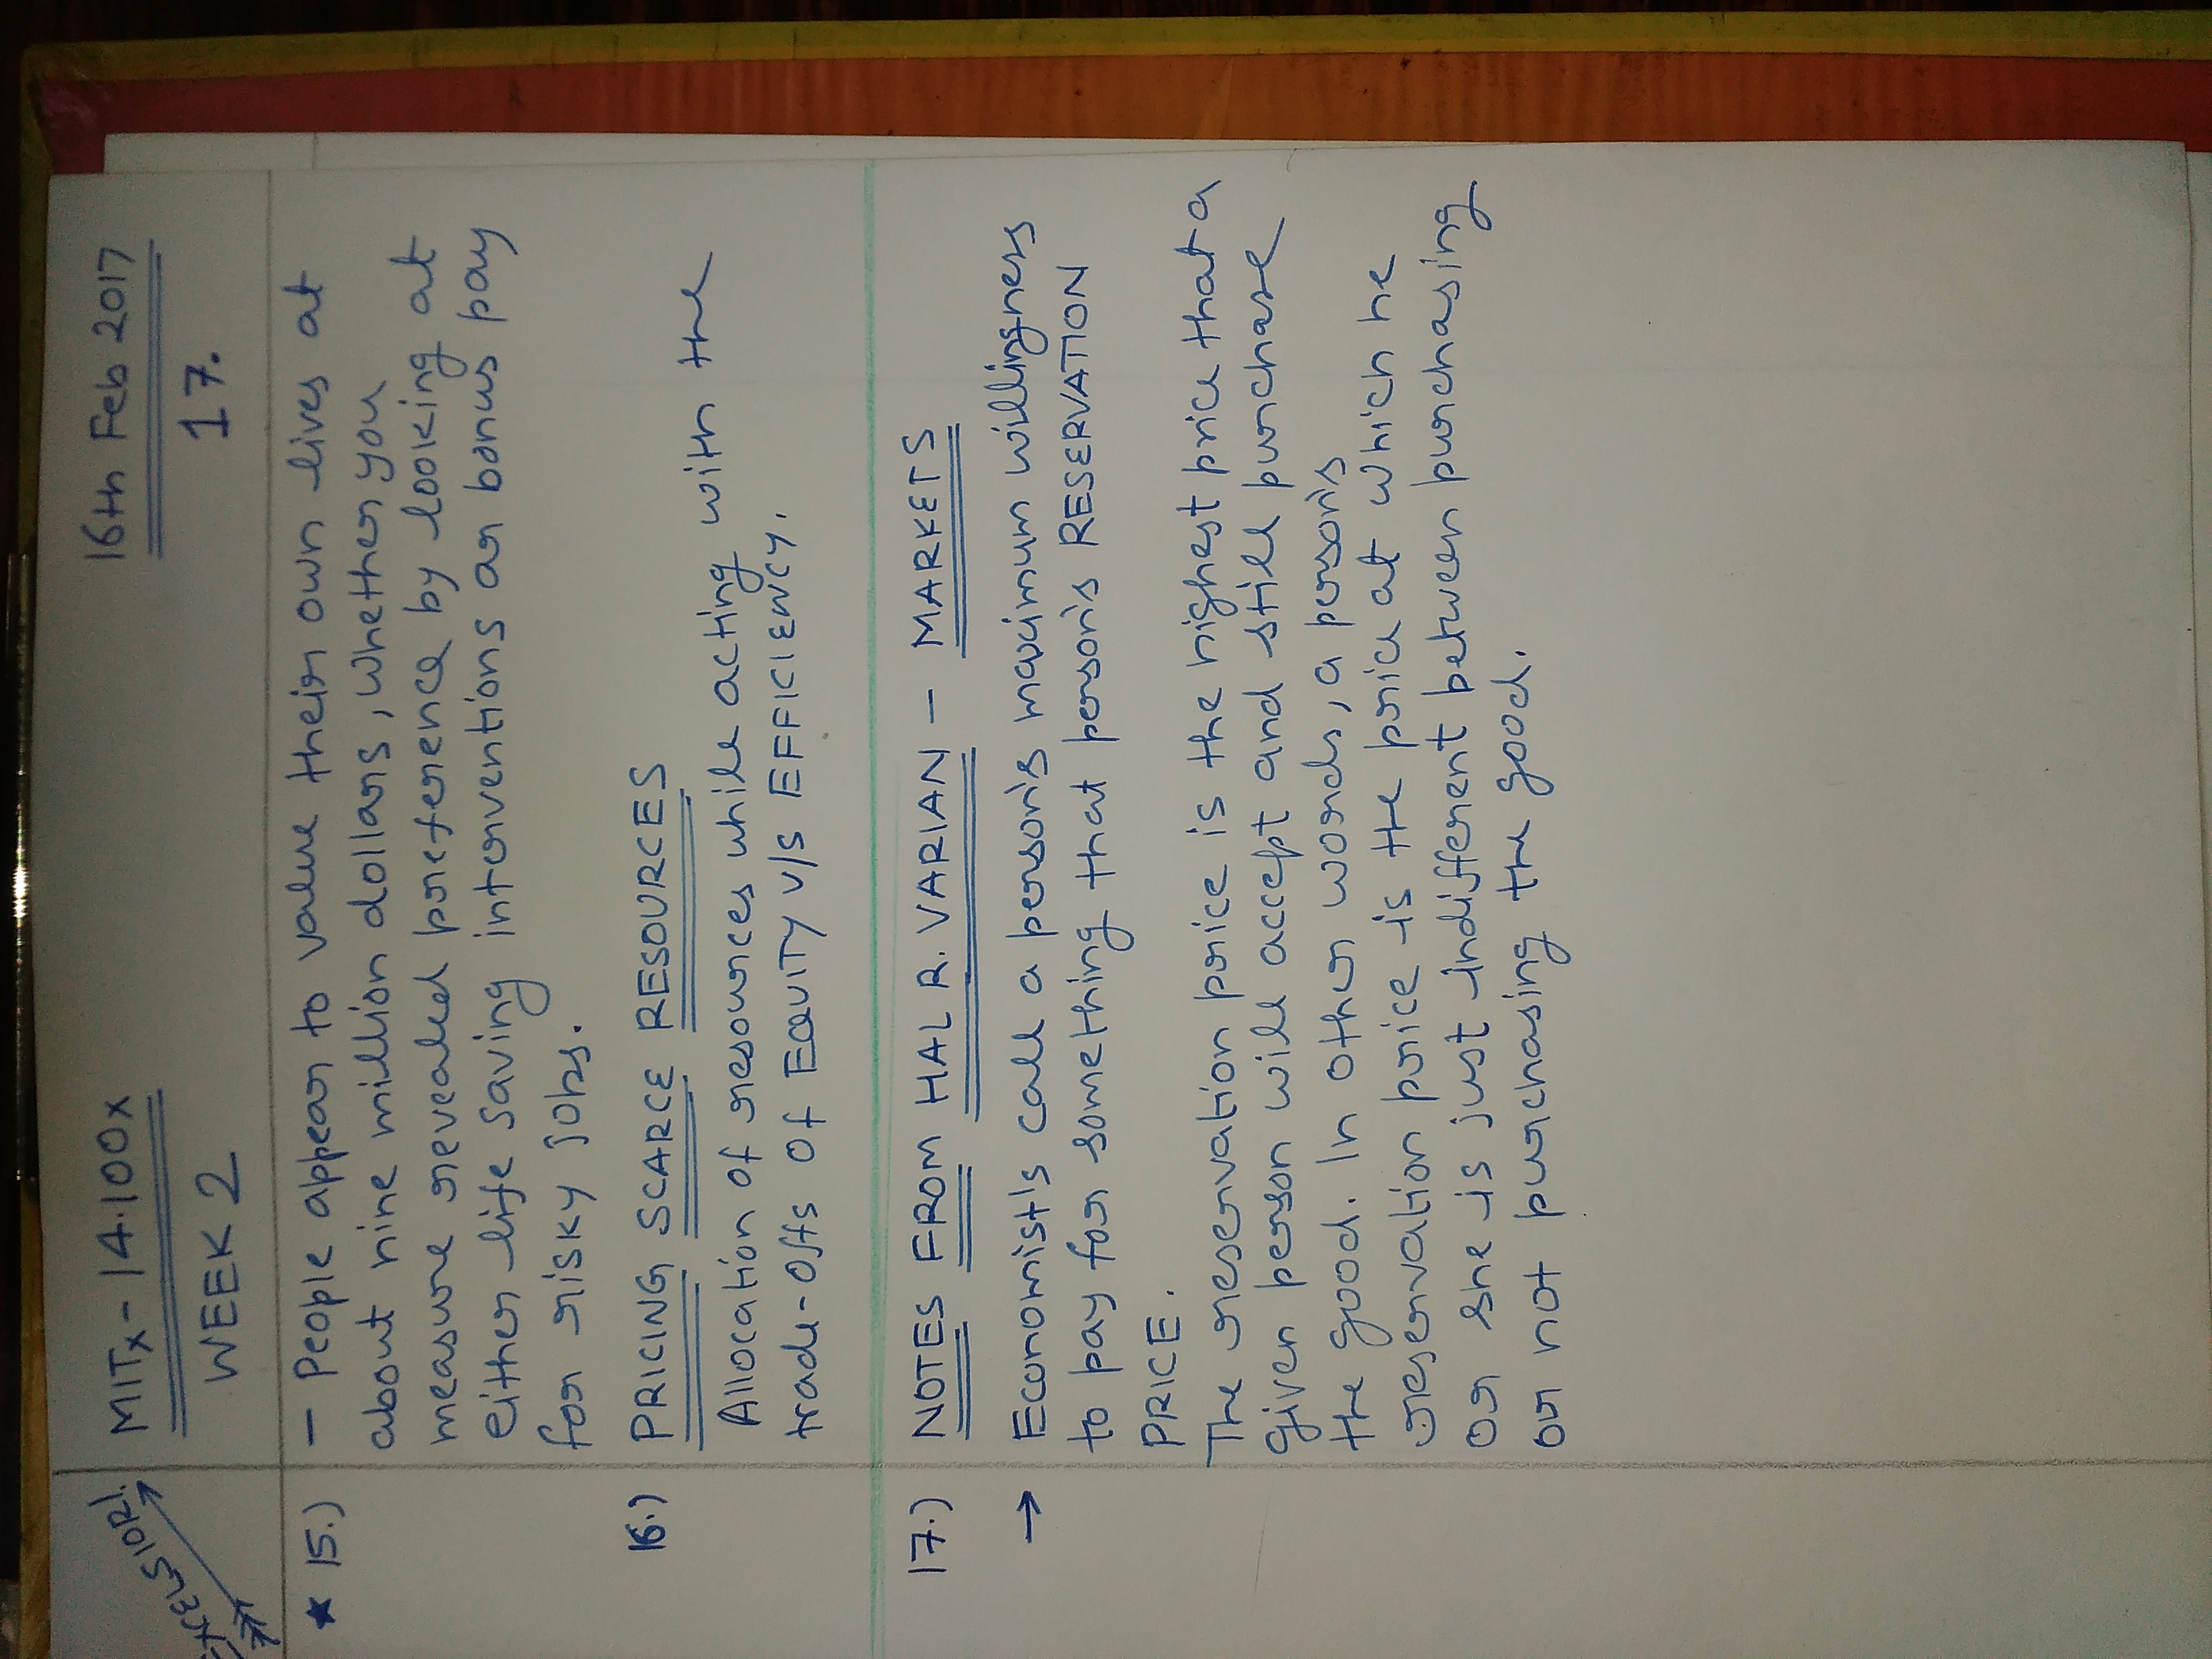 EXCELSIOR!
MITx - 14.100x
16th Feb 2017
WEEK 2
17.
★ 15.) — People appear to value their own lives at
about nine million dollars, whether you
measure revealed preference by looking at
either life saving interventions or bonus pay
for risky jobs.
16.) PRICING SCARCE RESOURCES
Allocation of resources while acting with the
trade-offs of EQUITY V/S EFFICIENCY.
17.) NOTES FROM HAL R. VARIAN — MARKETS
→ Economist's call a person's maximum willingness
to pay for something that person's RESERVATION
PRICE.
The reservation price is the highest price that a
given person will accept and still purchase
the good. In other words, a person's
reservation price is the price at which he
or she is just indifferent between purchasing
or not purchasing the good.